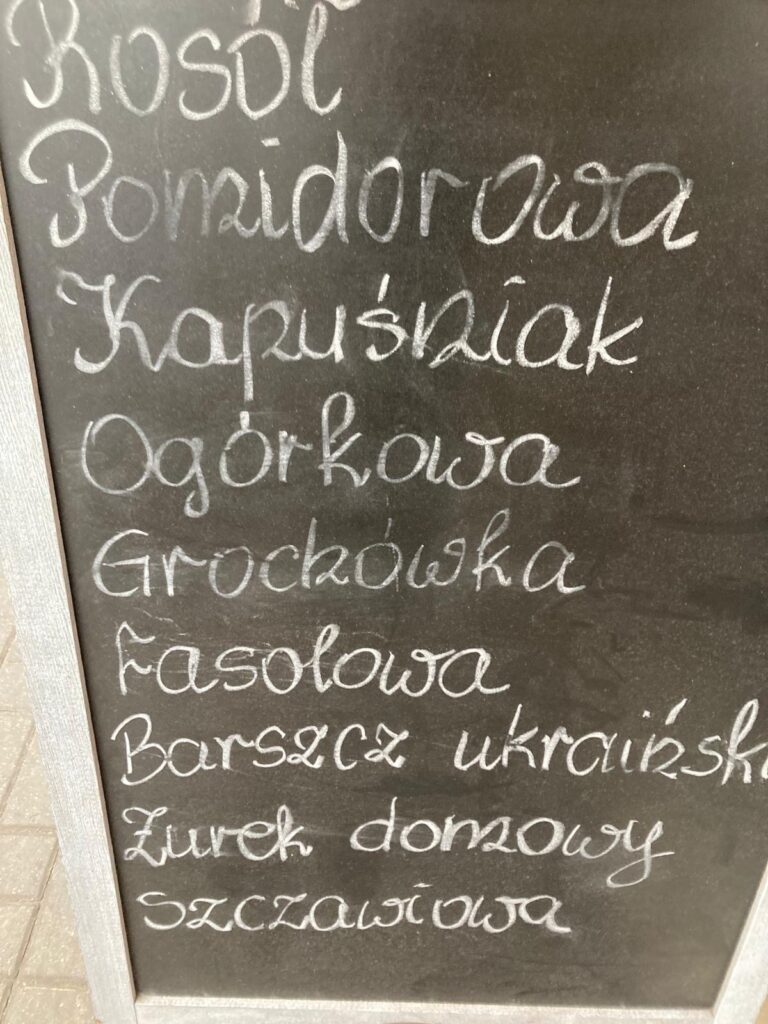 Rosół
Pomidorowa
Kapuśniak
Ogórkowa
Grochówka
Fasolowa
Barszcz ukraińsk
Żurek domowy
szczawiowa